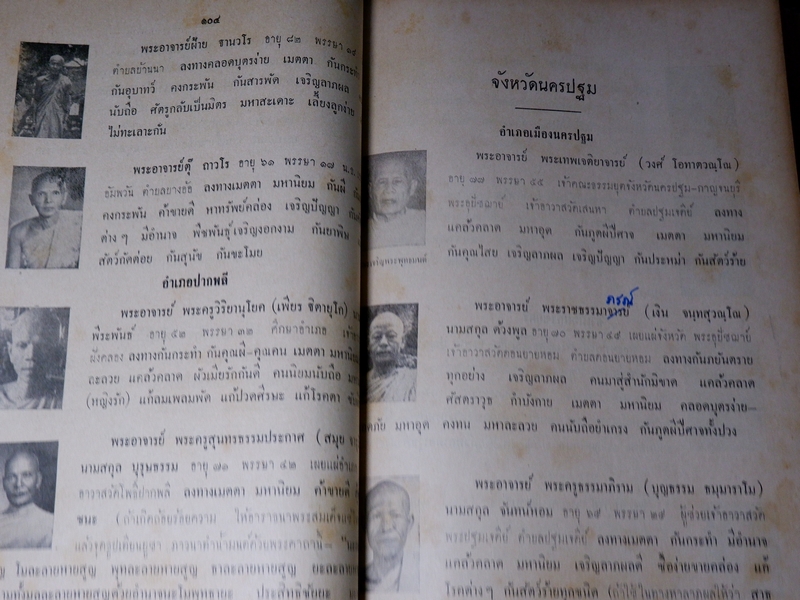 ๑๐๔
พระอาจารย์ฝ้าย ฐานวโร อายุ ๘๒ พรรษา ๑๙
ตำบลย้านนา ลงทางคลอดบุตรง่าย เมตตา กันกระทำ
กันอุบาทว์ คงกระพัน กันสารพัด เจริญลาภผล
นับถือ ศัตรูกลับเป็นมิตร มหาสะเดาะ เลี้ยงลูกง่าย
ไม่ทะเลาะกัน
พระอาจารย์ตุ๊ ถาวโร อายุ ๖๑ พรรษา ๑๗ น.ธ.
อัมพวัน ตำบลยางอ้อ ลงทางเมตตา มหานิยม กันผี
คงกระพัน ค้าขายดี หาทรัพย์คล่อง เจริญปัญญา กัน
ต่างๆ มีอำนาจ พืชพันธุ์เจริญงอกงาม กันยาพิษ
สัตว์กัดต่อย กันสุนัข กันขะโมย
อำเภอปากพลี
พระอาจารย์ พระครูวิริยานุโยค (เพียร ฐิตายุโก)
พีระพันธ์ อายุ ๕๒ พรรษา ๓๒ ศึกษาอำเภอ เจ้า
ฝั่งคลอง ลงทางกันกระทำ กันคุณผี-คุณคน เมตตา มหานิยม
ละลวย แคล้วคลาด ผัวเมียรักกันดี คนนิยมนับถือ
(หญิงรัก) แก้ลมเพลมพัด แก้ปวดศีรษะ แก้โรคตา
พระอาจารย์ พระครูสุนทรธรรมประกาศ (สมุย
นามสกุล บุรุษธรรม อายุ ๗๑ พรรษา ๔๒ เผยแผ่อำเภอ
อาวาสวัดโพธิ์ปากพลี ลงทางเมตตา มหานิยม ค้าขายดี
ชนะ (ถ้าเกิดถ้อยร้อยความ ให้อาราธนาพระสมเด็จ
แล้วจุดธูปเทียนบูชา ภาวนาทำน้ำมนต์ด้วยพระคาถานี้—
ในละลายหายสูญ พุทละลายหายสูญ ธาละลายหายสูญ ยะละลายหาย
ประสิทธิชัยยะ
จังหวัดนครปฐม
อำเภอเมืองนครปฐม
พระอาจารย์ พระเทพเจติยาจารย์ (วงศ์ โอทาตวณฺโณ)
อายุ ๗๗ พรรษา ๕๕ เจ้าคณะธรรมยุตจังหวัดนครปฐม-กาญจนบุรี
พระอุปัชฌาย์ เจ้าอาวาสวัดเสนหา ตำบลปฐมเจดีย์ ลงทาง
แคล้วคลาด มหาอุด กันภูตผีปีศาจ เมตตา มหานิยม
กันคุณไสย เจริญลาภผล เจริญปัญญา กันประหม่า กันสัตว์ร้าย
เจริญพระพุทธมนต์
ภรณ์
พระอาจารย์ พระราชธรรมาจารย์ (เงิน จนฺทสุวณฺโณ)
นามสกุล ด้วงพูล อายุ ๗๐ พรรษา ๔๙ เผยแผ่จังหวัด พระอุปัชฌาย์
เจ้าอาวาสวัดดอนยายหอม ตำบลดอนยายหอม ลงทางกันภยันตราย
ทุกอย่าง เจริญลาภผล คนมาสู่สำนักมิขาด แคล้วคลาด
ศัสตราวุธ กำบังกาย เมตตา มหานิยม คลอดบุตรง่าย—
ภัย มหาอุด คงทน มหาละลวย คนนับถือยำเกรง กันภูตผีปีศาจทั้งปวง
พระอาจารย์ พระครูธรรมาภิราม (บุญธรรม ธมฺมาราโม)
นามสกุล จันทน์หอม อายุ ๖๙ พรรษา ๒๙ ผู้ช่วยเจ้าอาวาสวัด
พระปฐมเจดีย์ ตำบลปฐมเจดีย์ ลงทางเมตตา กันกระทำ มีอำนาจ
แคล้วคลาด มหานิยม เจริญลาภผลดี ซื้อง่ายขายคล่อง แก้
โรคต่างๆ กันสัตว์ร้ายทุกชนิด (ถ้าใช้ในทางหาลาภผลให้ว่า สาธ